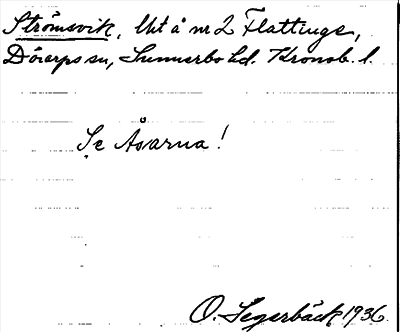 Strömsvik, Utå nr 2 Flattinge,
Dörarps sn, Sunnerbo hd. Kronob. l.
Se Åsarna!
O. Segerbäck 1936.